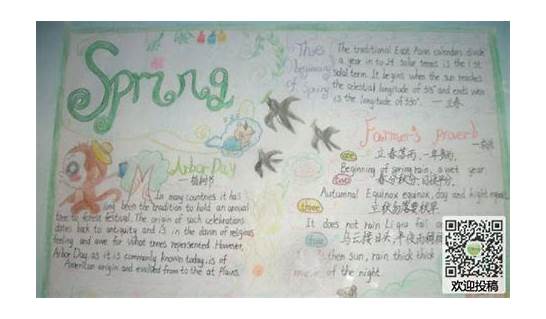 Spring
The beginning of Spring
The traditional East Asian calendars divide
a year into 24 solar terms is the 1st
solar term. It begins when the sun reaches
the celestial longitude of 315° and ends when
is the longitude of 330°. —立春
Arbor Day
—植树节
In many countries it has
long been the tradition to hold an annual
tree to forest festival. The origin of such celebrations
dates back to antiquity and is in the dawn of religious
feeling and awe for what trees represented. However,
Arbor Day as it is commonly known today, is of
American origin and evolved from the at Plains.
Farmer's proverb
one 立春落雨,一年多雨,
Beginning of spring rain, a wet year
two 春分秋分,昼夜平分,
Autumnal Equinox equinox, day and night equal
three 立秋
It does not rain Liqiu fail
乌云接日头,半夜雨
then sun, rain thick thick
of the night.
欢迎投稿